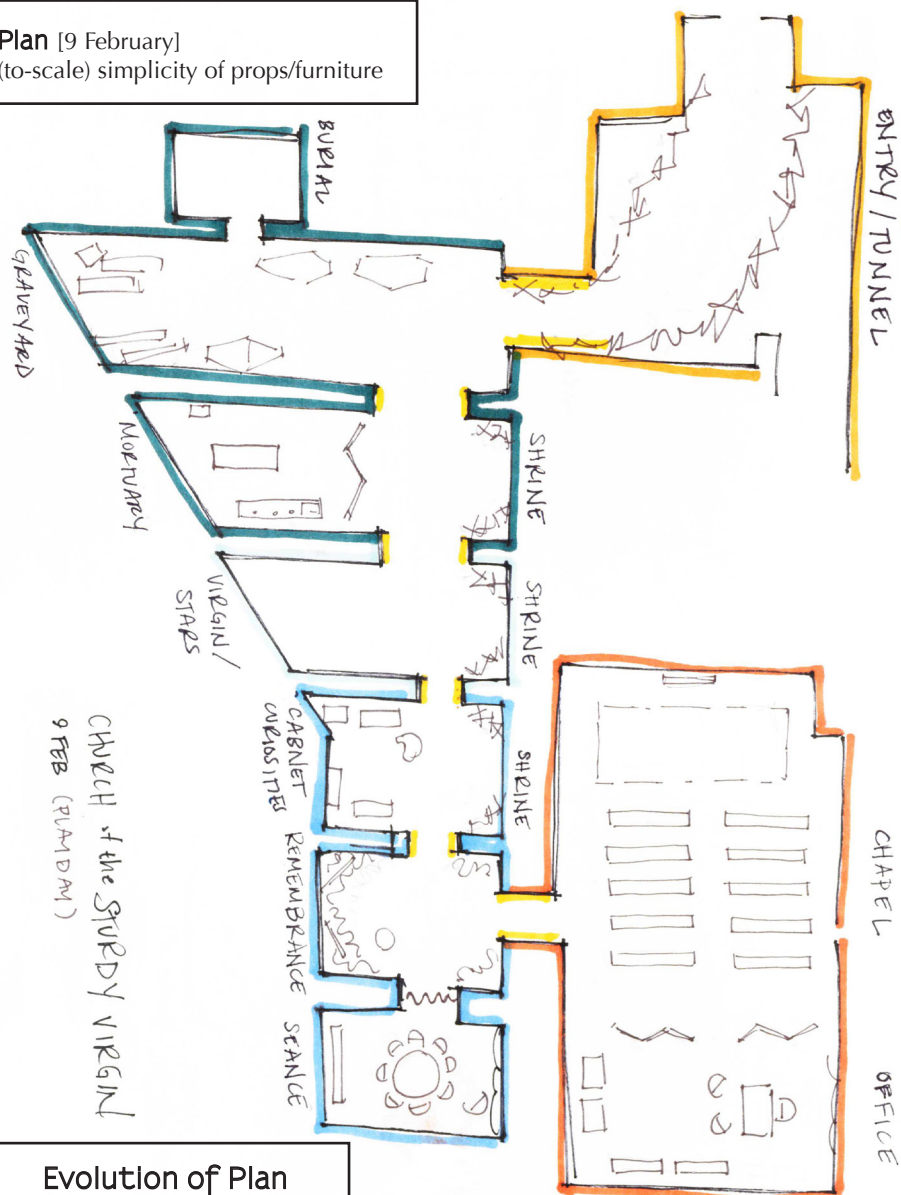 Plan [9 February]
(to-scale) simplicity of props/furniture
ENTRY / TUNNEL
BURIAL
GRAVEYARD
MORTUARY
SHRINE
VIRGIN /
STARS
SHRINE
CABNET
CURIOSITIES
SHRINE
REMEMBRANCE
SEANCE
CHAPEL
OFFICE
CHURCH of the STURDY VIRGIN
9 FEB (PLAN DAM)
Evolution of Plan